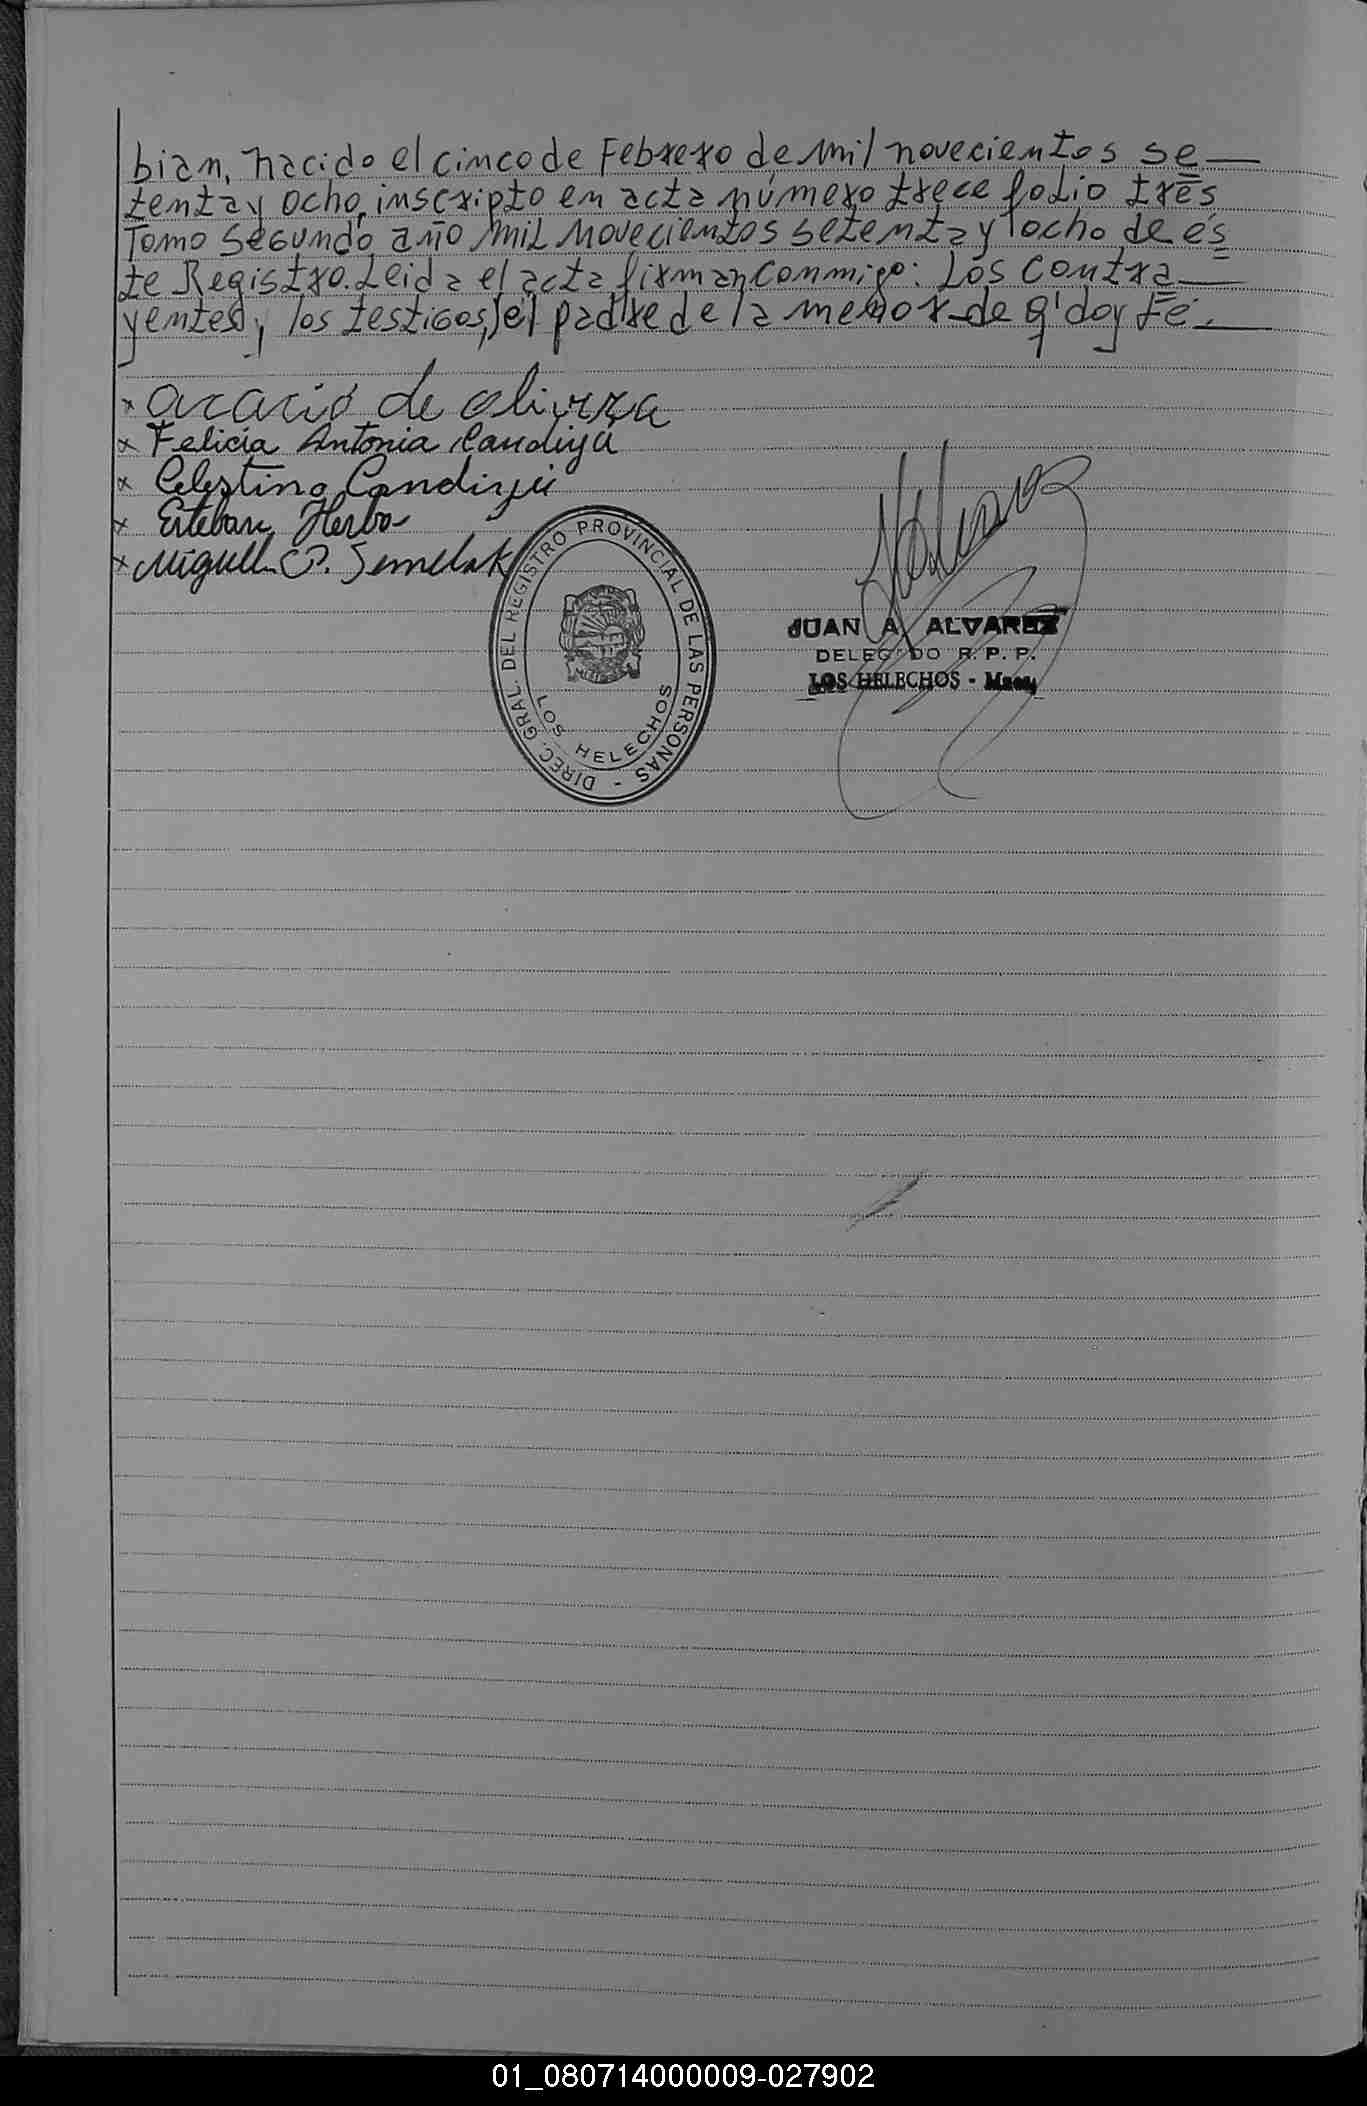 bian, nacido el cinco de Febrero de mil novecientos se—
tenta y ocho, inscripto en acta número trece folio tres
Tomo Segundo año mil novecientos setenta y ocho de es
te Registro. Leida el acta firman conmigo: Los contra—
yentes, los testigos, y el padre de la menor de q' doy Fé.—
x acacio de oliveza
x Felicia Antonia Candiya
x Celestino Candiyu
x Esteban Herbo
x Miguel P. Semelak
DIREC. GRAL. DEL REGISTRO PROVINCIAL DE LAS PERSONAS -
LOS HELECHOS
JUAN A. ALVAREZ
DELEGADO R. P. P.
LOS HELECHOS - Mnes.
01_080714000009-027902